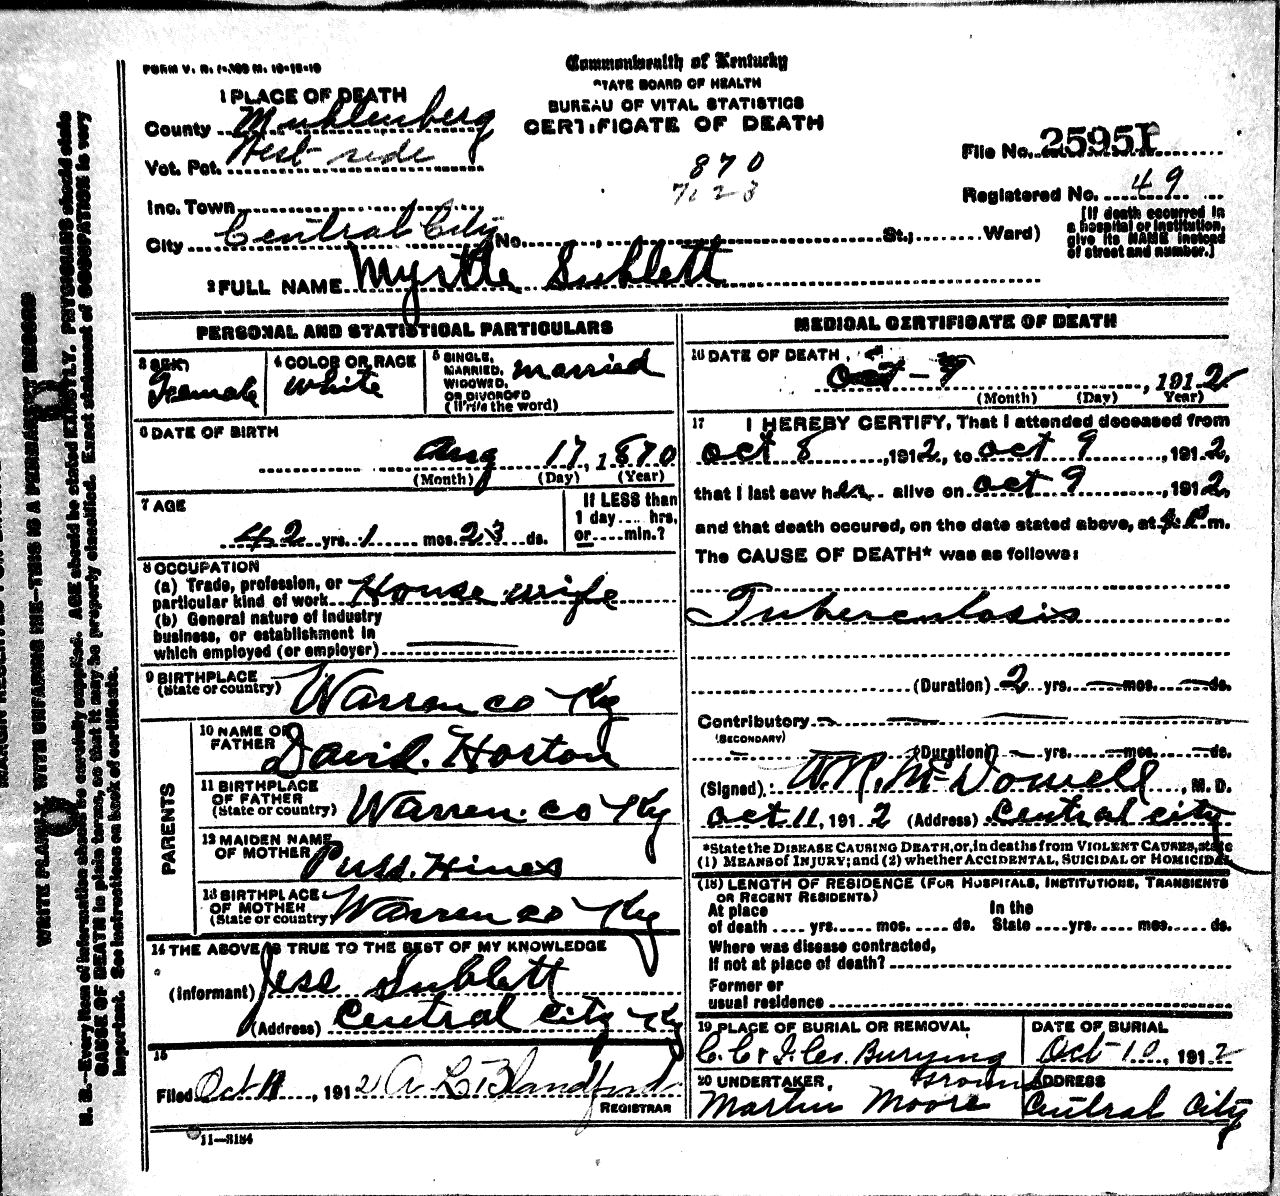 FORM V. R. 1-300 M. 10-18-10
Commonwealth of Kentucky
STATE BOARD OF HEALTH
BUREAU OF VITAL STATISTICS
CERTIFICATE OF DEATH
1 PLACE OF DEATH
County Muhlenberg
Vot. Pct. West side
Inc. Town
City Central City No. St.; Ward)
870
File No. 25951
Registered No. 49
[If death occurred in
a hospital or institution,
give its NAME instead
of street and number.]
2 FULL NAME Myrtle Sublett
PERSONAL AND STATISTICAL PARTICULARS
3 SEX Female
4 COLOR OR RACE White
5 SINGLE, MARRIED, WIDOWED, OR DIVORCED (Write the word) married
6 DATE OF BIRTH
Aug 17, 1870
(Month) (Day) (Year)
7 AGE
42 yrs. 1 mos. 23 ds.
If LESS than
1 day.... hrs,
or.... min.?
8 OCCUPATION
(a) Trade, profession, or
particular kind of work House wife
(b) General nature of industry
business, or establishment in
which employed (or employer)
9 BIRTHPLACE
(State or country) Warren co Ky
PARENTS
10 NAME OF
FATHER David. Horton
11 BIRTHPLACE
OF FATHER
(State or country) Warren. co Ky
12 MAIDEN NAME
OF MOTHER Puss. Hines
13 BIRTHPLACE
OF MOTHER
(State or country) Warren co Ky
14 THE ABOVE IS TRUE TO THE BEST OF MY KNOWLEDGE
(Informant) Jess Sublett
(Address) Central City Ky
15
Filed Oct 11, 1912 A L Blandford
REGISTRAR
11—3184
MEDICAL CERTIFICATE OF DEATH
16 DATE OF DEATH
Oct - 9, 1912
(Month) (Day) Year)
17 I HEREBY CERTIFY, That I attended deceased from
oct 8, 1912, to oct 9, 1912,
that I last saw her alive on oct 9, 1912,
and that death occured, on the date stated above, at m.
The CAUSE OF DEATH* was as follows:
Tuberculosis
(Duration) 2 yrs. mos. ds.
Contributory
(SECONDARY)
(Duration) yrs. mos. ds.
(Signed) W.R. McDowell, M. D.
oct 11, 1912 (Address) Central city
*State the DISEASE CAUSING DEATH, or, in deaths from VIOLENT CAUSES, state
(1) MEANS of INJURY; and (2) whether ACCIDENTAL, SUICIDAL or HOMICIDAL
(18) LENGTH OF RESIDENCE (FOR HOSPITALS, INSTITUTIONS, TRANSIENTS
OR RECENT RESIDENTS)
At place In the
of death .... yrs. .... mos. .... ds. State .... yrs. .... mos. .... ds.
Where was disease contracted,
If not at place of death?
Former or
usual residence
19 PLACE OF BURIAL OR REMOVAL
C. C & I. Co. Burying Ground
DATE OF BURIAL
Oct-10, 1912
20 UNDERTAKER,
Martin Moore
ADDRESS
Central City
WRITE PLAINLY, WITH UNFADING INK—THIS IS A PERMANENT RECORD
N. B.—Every item of information should be carefully supplied. AGE should be stated EXACTLY. PHYSICIANS should state
CAUSE OF DEATH in plain terms, so that it may be properly classified. Exact statement of OCCUPATION is very
important. See instructions on back of certificate.